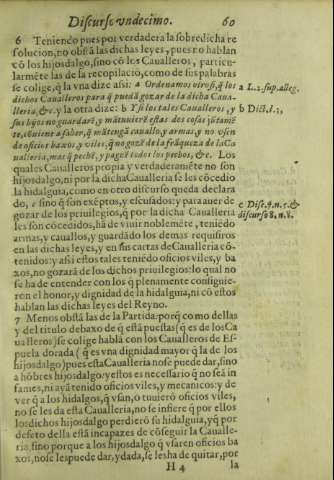 Discurso vndecimo. 60
6 Teniendo pues por verdadera la sobredicha re
solucion, no obstā las dichas leyes, pues no hablan
cō los hijosdalgo, sino cō los Caualleros, particu-
larmēte las de la recopilació, como de sus palabras
se colige, q̄ la vna dize assi: a Ordenamos otrosi, q̄ los
dichos Caualleros para q̄ puedā gozar de la dicha Caua-
lleria, &c. y la otra dize: b Y si los tales Caualleros, y
sus hijos no guardarē, y mātuuierē estas dos cosas jūtamē
te, cōuiene a saber, q̄ mātengā cauallo, y armas, y no vsen
de oficios baxos, y viles, q̄ no gozē de la frāqueza de la Ca
ualleria, mas q̄ pechē, y paguē todos los pechos, &c. Los
quales Caualleros propia y verdaderamēte no son
hijosdalgo, ni por la dicha Caualleria se les cōcedio
la hidalguia, como en otro discurso queda declara
do, c sino q̄ son exēptos, y escusados: y para auer de
gozar de los priuilegios, q̄ por la dicha Caualleria
les son cōcedidos, hā de viuir noblemēte, teniēdo
armas, y cauallos, y guardādo los demas requisitos
en las dichas leyes, y en sus cartas de Caualleria cō-
tenidos: y assi estos tales teniēdo oficios viles, y ba
xos, no gozarā de los dichos priuilegios: lo qual no
se ha de entender con los q̄ plenamente consiguie-
ron el honor, y dignidad de la hidalguia, ni cō estos
hablan las dichas leyes del Reyno.
7 Menos obstā las de la Partida: porq̄ como dellas
y del titulo debaxo de q̄ estā puestas (q̄ es de los Ca
ualleros) se colige hablā con los Caualleros de Es-
puela dorada (q̄ es vna dignidad mayor q̄ la de los
hijosdalgo) pues esta Caualleria no se puede dar, sino
a hōbres hijosdalgo: y estos es necessario q̄ no seā in
fames, ni ayā tenido oficios viles, y mecanicos: y de
ver q̄ a los hidalgos, q̄ vsan, o tuuierō oficios viles,
no se les da esta Caualleria, no se infiere q̄ por ellos
los dichos hijosdalgo perdierō su hidalguia, y q̄ por
defeto della estā incapazes de cōseguir la Caualle-
ria, sino porque a los hijosdalgo q̄ vsaren oficios ba
xos, no se les puede dar, y dada, se les ha de quitar, por
H 4 la
a L. 2. sup. alleg.
b Dict. l. 2,
c Disc. 7. n. 5. &
discurso 8. n. 8.